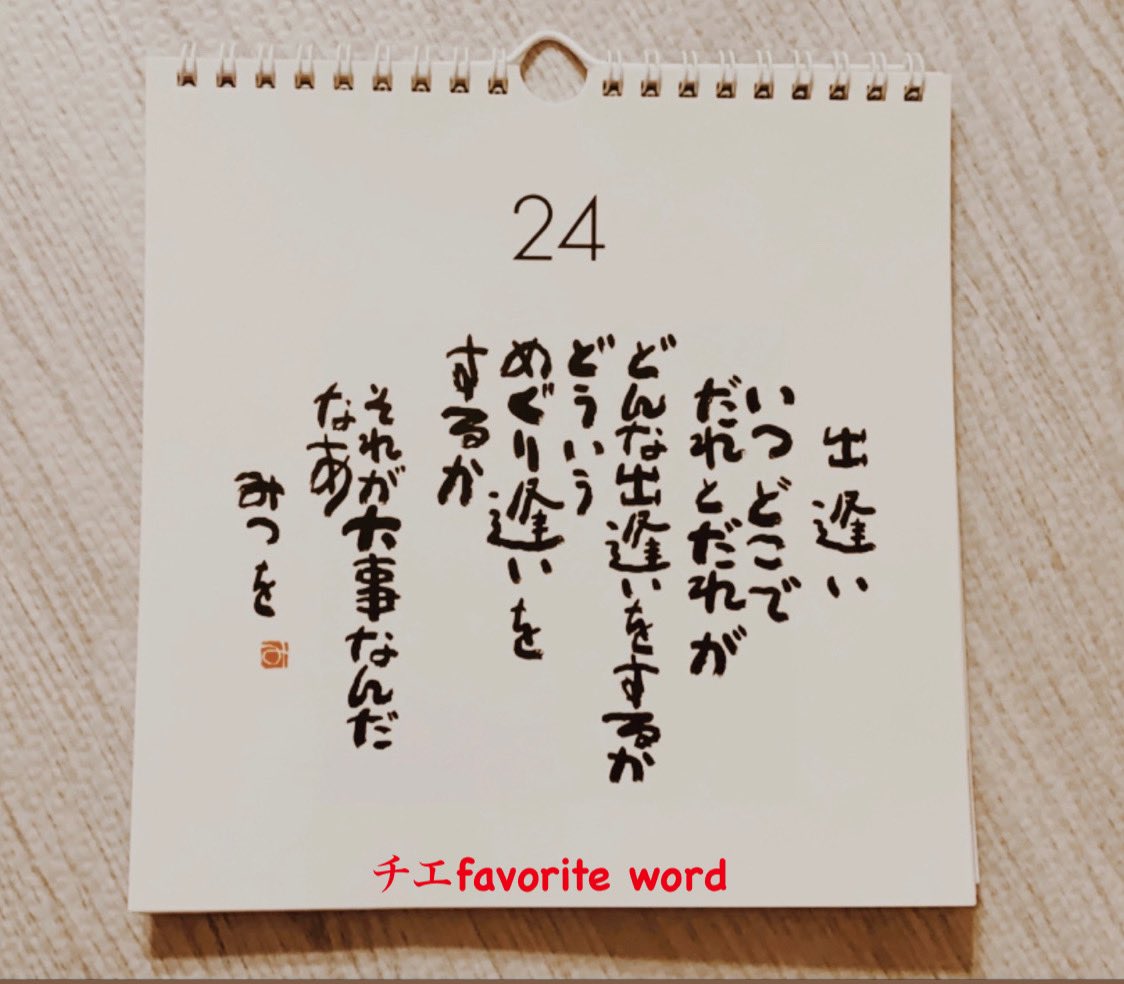 24
出逢い
いつどこで
だれとだれが
どんな出逢いをするか
どういう
めぐり逢いを
するか
それが大事なんだ
なあ
みつを
チエfavorite word